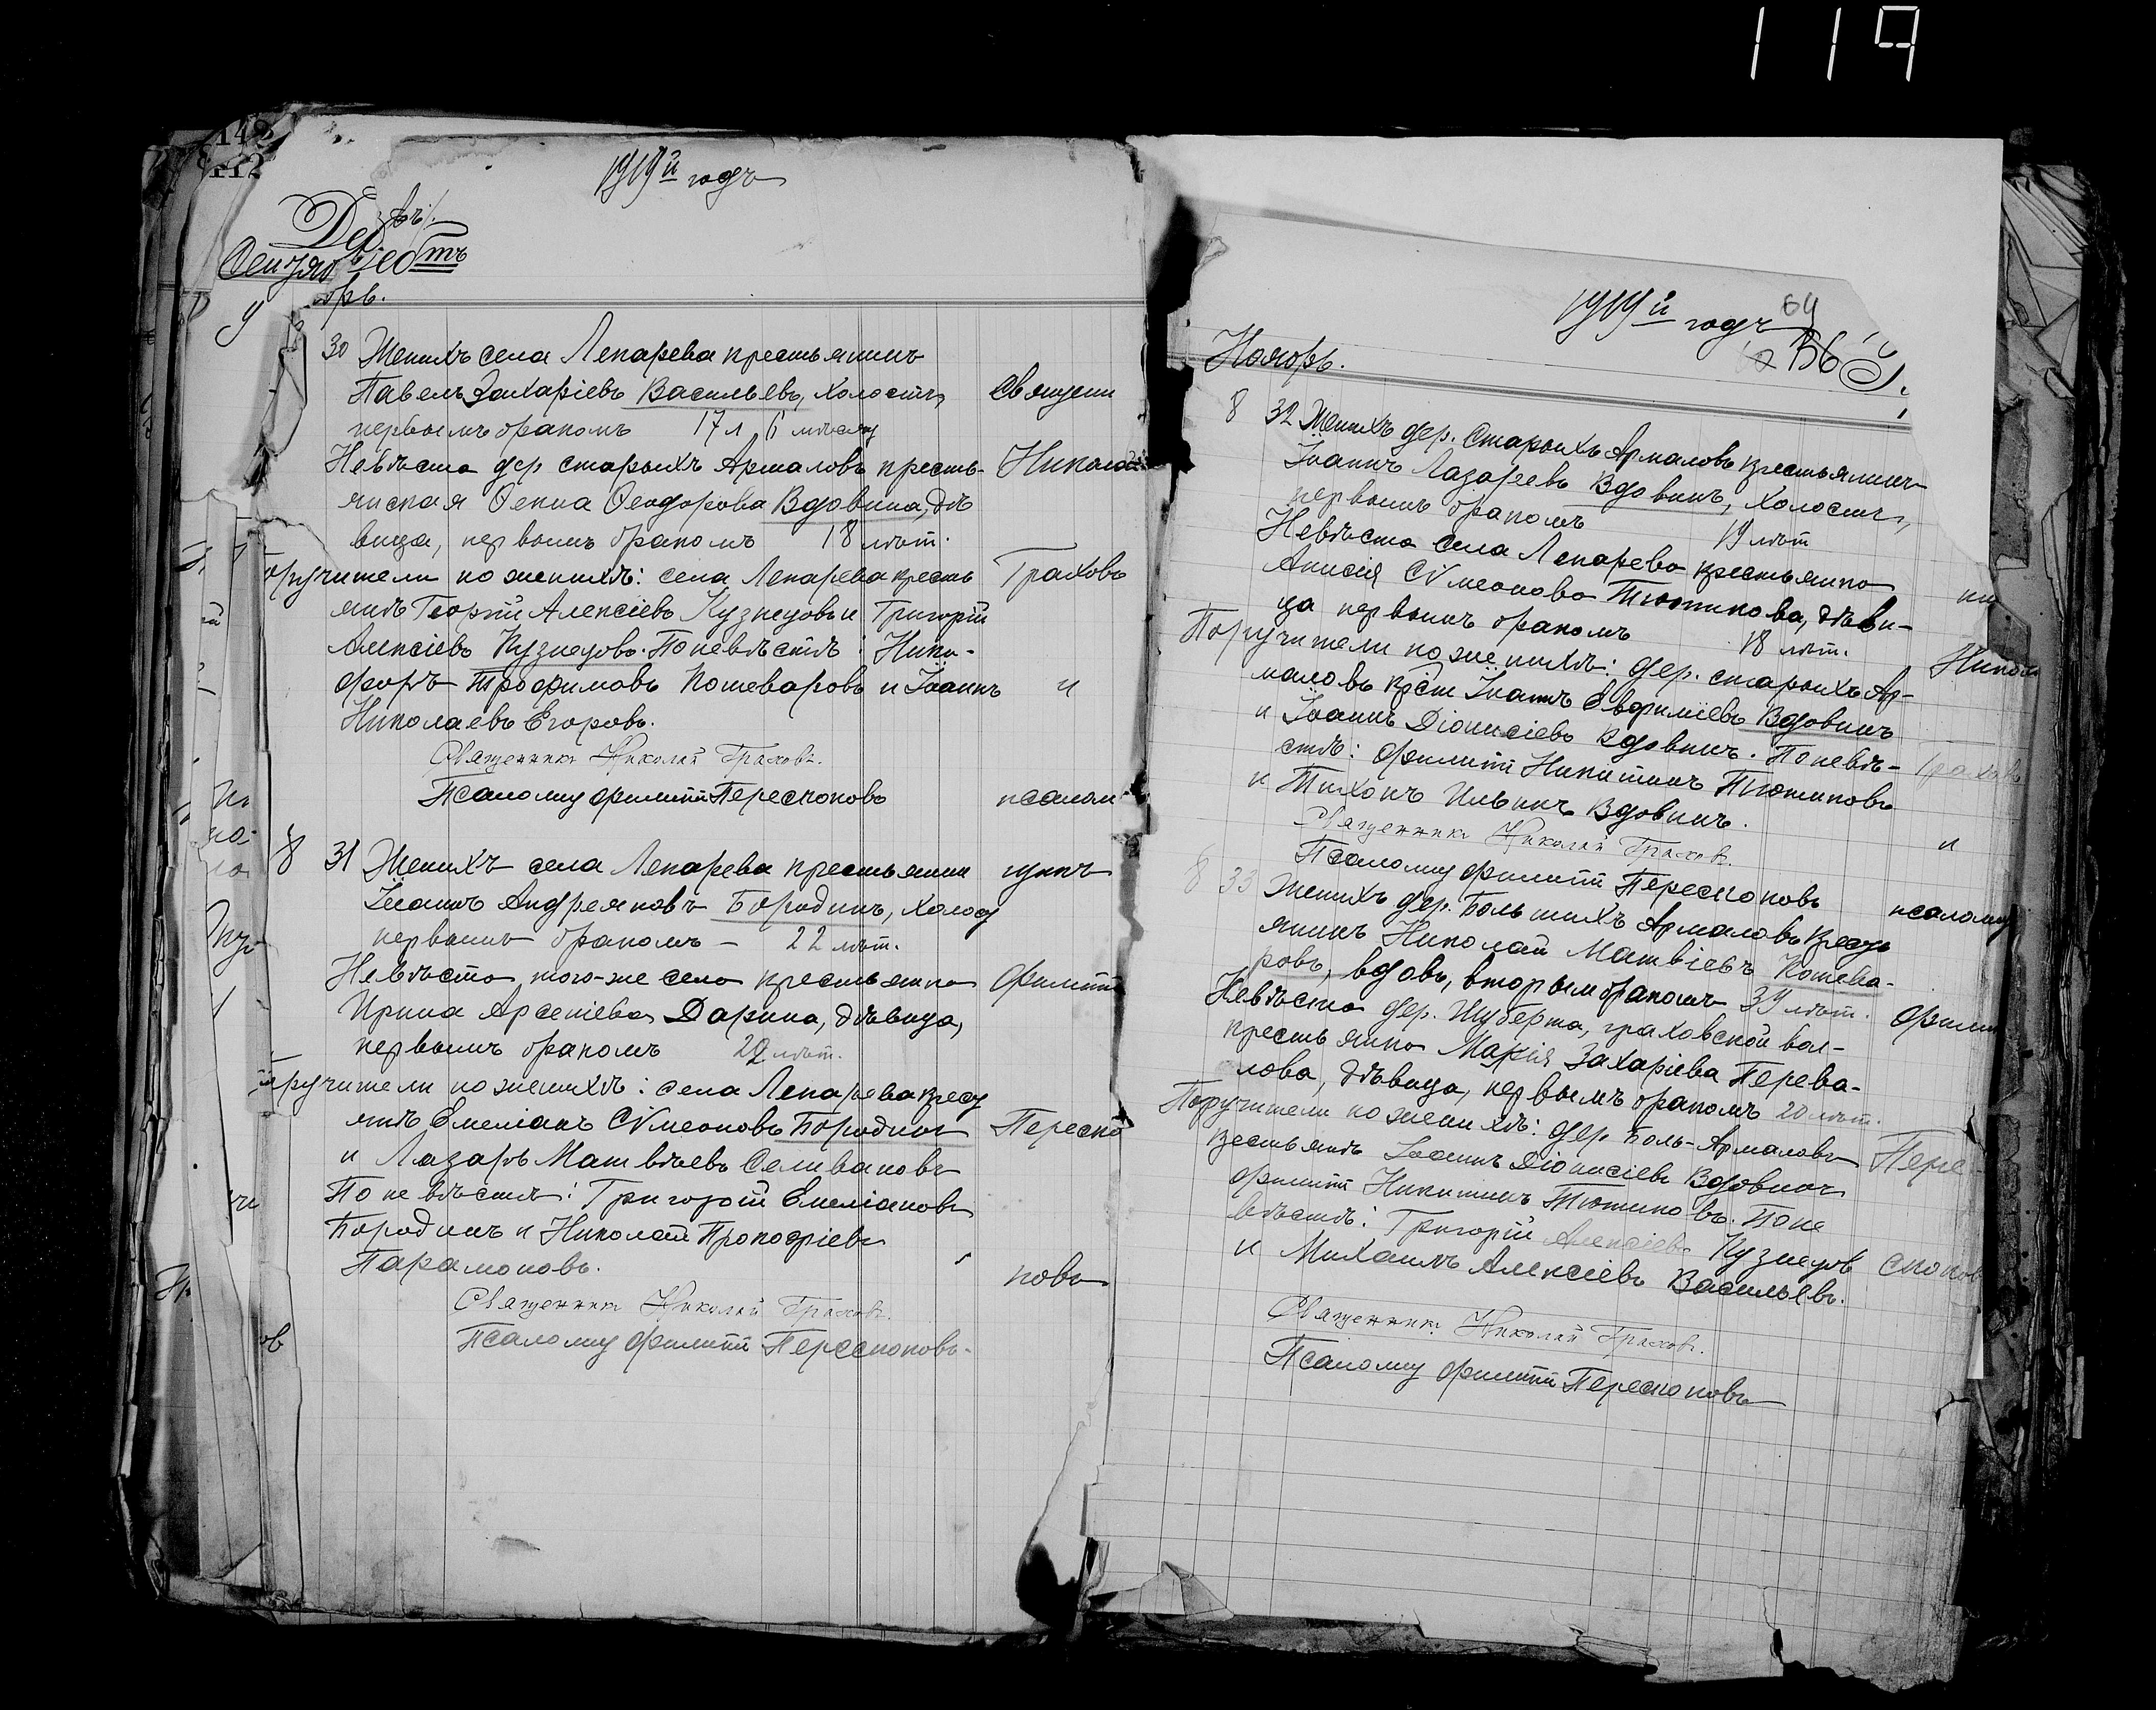 119
142
112
1919й годъ
30 Женихъ села Лекарева крестьянинъ
Павелъ Захаріевъ Васильевъ, холостъ,
первымъ бракомъ 17 л. 6 мѣсяц
Невѣста дер. старыхъ Армаловъ кресть-
янская Ѳекла Ѳеодорова Вдовина, дѣ
вица, первымъ бракомъ 18 лѣт.
оручители по женихѣ: села Лекарева кресть
янѣ Георгій Алексіевъ Кузнецовъ и Григорій
Алексіевъ Кузнецовъ. По невѣстѣ: Ники-
форъ Трофимовъ Кошеваровъ и Іоаннъ
Николаевъ Егоровъ.
Священникъ Николай Граховъ.
Псаломщ Филиппъ Перескоковъ
священн
Николай
Граховъ
и
псалом
8 31 Женихъ села Лекарева крестьянин
Іоаннъ Андреяновъ Бородинъ, холос
первымъ бракомъ – 22 лѣт.
Невѣста того-же села крестьянка
Ирина Арсеніева Дарина, дѣвица,
первымъ бракомъ 22 лѣт.
оручители по женихѣ: села Лекарева крест
янѣ Емеліанъ Сѵмеоновъ Бородинъ
и Лазарь Матвѣевъ Селивановъ
По невѣстѣ: Григорій Емеліановъ
Бородинъ и Николай Прокофіевъ
Парамоновъ.
Священникъ Николай Граховъ.
Псаломщ Филиппъ Перескоковъ.
щикъ
Филиппъ
Переско
ковъ
1919й годъ
64
Ноябрь.
8 32 Женихъ дер. Старыхъ Армаловъ крестьянинъ
Іоаннъ Лазаревъ Вдовинъ, холостъ,
первымъ бракомъ 19 лѣт
Невѣста села Лекарева крестьянка
Анисія Сѵмеонова Тютикова, дѣви-
ца первымъ бракомъ 18 лѣт.
Поручители по женихѣ: дер. старыхъ Ар-
маловъ крест Іоаннъ Евфиміевъ Вдовинъ
и Іоаннъ Діонисіевъ Вдовинъ. По невѣ-
стѣ: Филиппъ Никитинъ Тютиковъ
и Тихонъ Ильинъ Вдовинъ.
Священникъ Николай Граховъ.
Псаломщ Филиппъ Перескоковъ
Никол
Граховъ
и
псаломщ
8 33 Женихъ дер. Большихъ Армаловъ крест
янинъ Николай Матвіевъ Кошева-
ровъ, вдовъ, вторым бракомъ 39 лѣт.
Невѣста дер. Шуберта, граховской вол-
крестьянка Марія Захаріева Перева-
лова, дѣвица, первымъ бракомъ 20 лѣт.
Поручители по женихѣ: дер. Боль-Армаловъ
крестьянѣ Іоаннъ Діонисіевъ Вдовинъ
Филиппъ Никитинъ Тютиковъ. По не
вѣстѣ: Григорій Алексіевъ Кузнецов
и Михаилъ Алексіевъ Васильевъ.
Священникъ Николай Граховъ.
Псаломщ Филиппъ Перескоковъ
Филип
Пере-
скоков